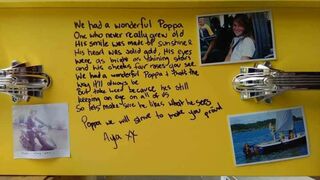 We had a wonderful Poppa
One who never really grew old
His smile was made of sunshine &
His heart was solid gold, His eyes
were as bright as shining stars
and his cheeks fair roses you see
We had a wonderful Poppa & thats the
way it'll always be
But take heed because he's still
keeping an eye on all of us
So lets make sure he likes what he sees
Poppa we will strive to make you proud
xx